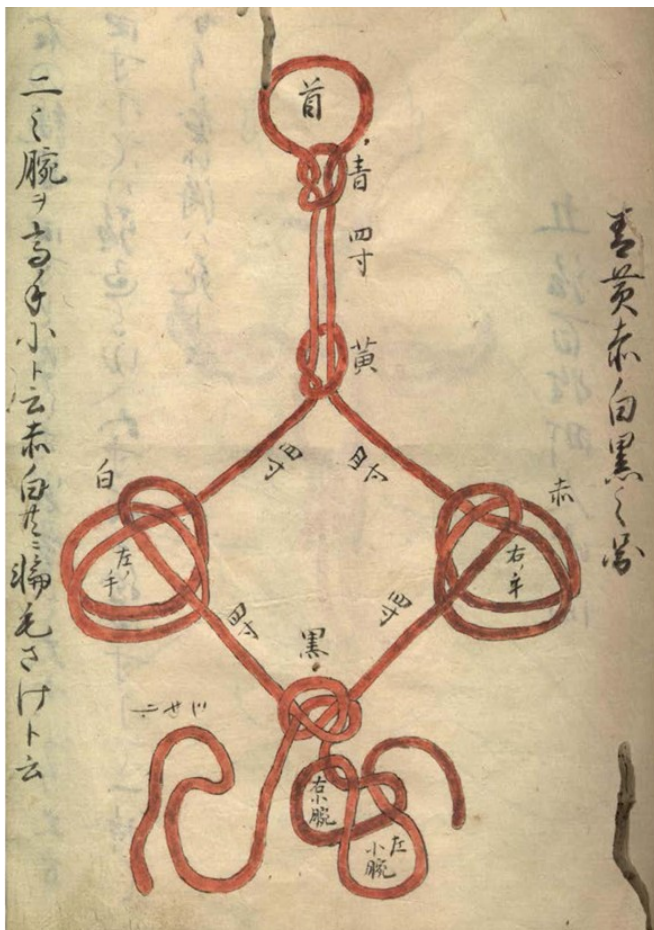 青黄赤白黒之図
首
青
四寸
黄
四寸
四寸
赤
右ノ手
白
左ノ手
四寸
四寸
黒
右小腕
左小腕
二之腕ヲ高手小ト云赤白共ニ蝙毛さけト云